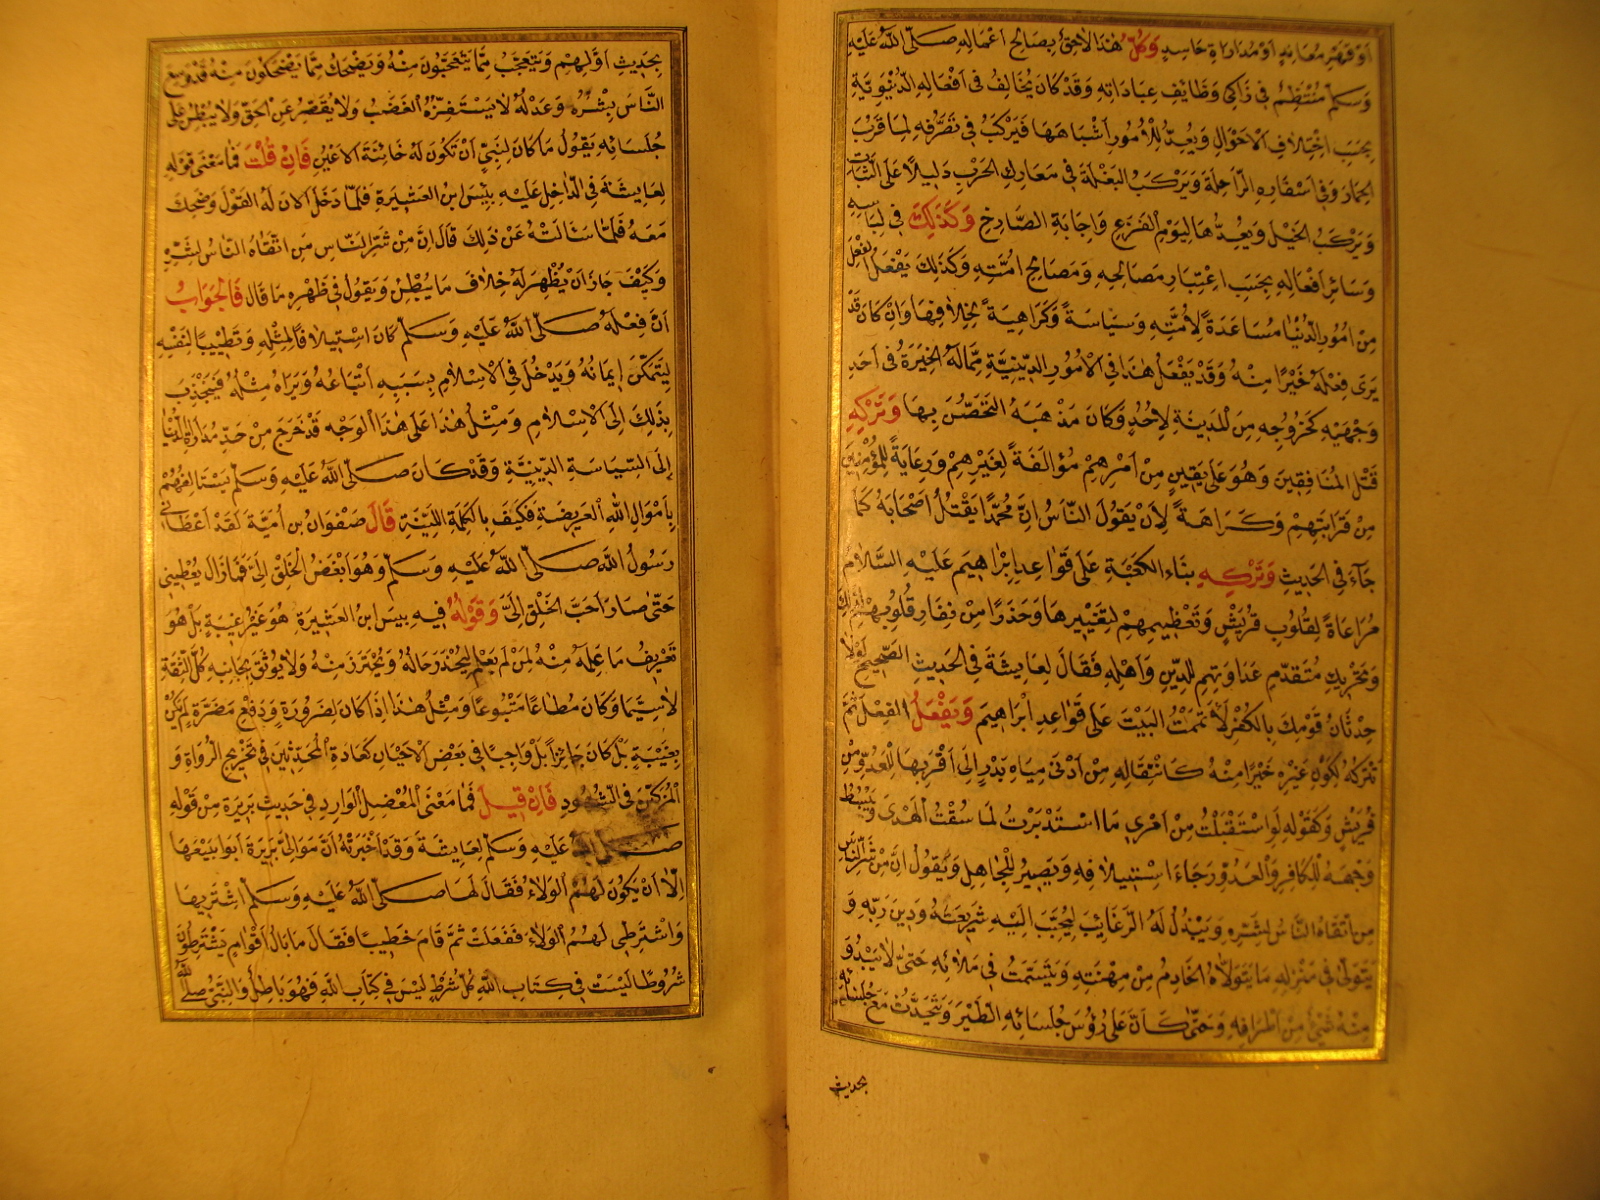 اَوْ قَهْرِ مُعَانِدٍ اَوْ مُدَارَاةِ حَاسِدٍ وَكُلُّ هٰذَا لَاحِقٌ بِصَالِحِ اَعْمَالِهِ صَلَّى اللّٰهُ عَلَيْهِ
وَسَلَّمَ مُنْتَظِمٌ فِي زَاكِي وَظَائِفِ عِبَادَاتِهِ وَقَدْ كَانَ يُخَالِفُ فِي اَفْعَالِهِ الدُّنْيَوِيَّةِ
بِحَسَبِ اخْتِلَافِ الْاَحْوَالِ وَيُعِدُّ لِلْاُمُورِ اَشْبَاهَهَا فَيَرْكَبُ فِي تَصَرُّفِهِ لِمَا قَرُبَ
الْحِمَارَ وَفِي اَسْفَارِهِ الرَّاحِلَةَ وَيَرْكَبُ الْبَغْلَةَ فِي مَعَارِكِ الْحَرْبِ دَلِيلًا عَلَى الثَّبَاتِ
وَيَرْكَبُ الْخَيْلَ وَيُعِدُّهَا لِيَوْمِ الْفَزَعِ وَاِجَابَةِ الصَّارِخِ وَكَذٰلِكَ فِي لِبَاسِهِ
وَسَائِرِ اَفْعَالِهِ بِحَسَبِ اعْتِبَارِ مَصَالِحِهِ وَمَصَالِحِ اُمَّتِهِ وَكَذٰلِكَ يَفْعَلُ الْفِعْلَ
مِنْ اُمُورِ الدُّنْيَا مُسَاعَدَةً لِاُمَّتِهِ وَسِيَاسَةً وَكَرَاهِيَةً لِخِلَافِهَا وَاِنْ كَانَ قَدْ
يَرَى فِعْلَهُ خَيْرًا مِنْهُ وَقَدْ يَفْعَلُ هٰذَا فِي الْاُمُورِ الدِّينِيَّةِ مِمَّا لَهُ الْخِيَرَةُ فِي اَحَدِ
وَجْهَيْهِ كَخُرُوجِهِ مِنَ الْمَدِينَةِ لِاُحُدٍ وَكَانَ مَذْهَبُهُ التَّحَصُّنَ بِهَا وَتَرْكِهِ
قَتْلَ الْمُنَافِقِينَ وَهُوَ عَلَى يَقِينٍ مِنْ اَمْرِهِمْ مُؤَالَفَةً لِغَيْرِهِمْ وَرِعَايَةً لِلْمُؤْمِنِينَ
مِنْ قَرَابَتِهِمْ وَكَرَاهَةً لِاَنْ يَقُولَ النَّاسُ اِنَّ مُحَمَّدًا يَقْتُلُ اَصْحَابَهُ كَمَا
جَاءَ فِي الْحَدِيثِ وَتَرْكِهِ بِنَاءَ الْكَعْبَةِ عَلَى قَوَاعِدِ اِبْرَاهِيمَ عَلَيْهِ السَّلَامُ
مُرَاعَاةً لِقُلُوبِ قُرَيْشٍ وَتَعْظِيمِهِمْ لِتَغْيِيرِهَا وَحَذَرًا مِنْ نِفَارِ قُلُوبِهِمْ لِذٰلِكَ
وَتَحْرِيكِ مُتَقَدِّمِ عَدَاوَتِهِمْ لِلدِّينِ وَاَهْلِهِ فَقَالَ لِعَايِشَةَ فِي الْحَدِيثِ الصَّحِيحِ لَوْلَا
حِدْثَانُ قَوْمِكِ بِالْكُفْرِ لَاَتْمَمْتُ الْبَيْتَ عَلَى قَوَاعِدِ اِبْرَاهِيمَ وَيَفْعَلُ الْفِعْلَ ثُمَّ
يَتْرُكُهُ لِكَوْنِ غَيْرِهِ خَيْرًا مِنْهُ كَانْتِقَالِهِ مِنْ اَدْنَى مِيَاهِ بَدْرٍ اِلَى اَقْرَبِهَا لِلْعَدُوِّ مِنْ
قُرَيْشٍ وَكَقَوْلِهِ لَوِ اسْتَقْبَلْتُ مِنْ اَمْرِي مَا اسْتَدْبَرْتُ لَمَا سُقْتُ الْهَدْىَ وَيَبْسُطُ
وَجْهَهُ لِلْكَافِرِ وَالْعَدُوِّ رَجَاءَ اسْتِئْلَافِهِ وَيَصْبِرُ لِلْجَاهِلِ وَيَقُولُ اِنَّ مِنْ شَرِّ النَّاسِ
مَنِ اتَّقَاهُ النَّاسُ لِشَرِّهِ وَيَبْذُلُ لَهُ الرَّغَائِبَ لِيُحَبِّبَ اِلَيْهِ شَرِيعَتَهُ وَدِينَ رَبِّهِ وَ
يَتَوَلَّى فِي مَنْزِلِهِ مَا يَتَوَلَّاهُ الْخَادِمُ مِنْ مِهْنَتِهِ وَيَتَسَمَّتُ فِي مَلَائِهِ حَتَّى لَا يَبْدُوَ
مِنْهُ شَيْءٌ مِنْ اَطْرَافِهِ وَحَتَّى كَاَنَّ عَلَى رُؤُسِ جُلَسَائِهِ الطَّيْرَ وَيَتَحَدَّثُ مَعَ جُلَسَائِهِ
بحديث
بِحَدِيثِ اَوَّلِهِمْ وَيَتَعَجَّبُ مِمَّا يَتَعَجَّبُونَ مِنْهُ وَيَضْحَكُ مِمَّا يَضْحَكُونَ مِنْهُ قَدْ وَسِعَ
النَّاسَ بِشْرُهُ وَعَدْلُهُ لَا يَسْتَفِزُّهُ الْغَضَبُ وَلَا يُقَصِّرُ عَنِ الْحَقِّ وَلَا يُبْطِنُ عَلَى
جُلَسَائِهِ يَقُولُ مَا كَانَ لِنَبِيٍّ اَنْ تَكُونَ لَهُ خَائِنَةُ الْاَعْيُنِ فَاِنْ قُلْتَ فَمَا مَعْنَى قَوْلِهِ
لِعَايِشَةَ فِي الدَّاخِلِ عَلَيْهِ بِئْسَ ابْنُ الْعَشِيرَةِ فَلَمَّا دَخَلَ اَلَانَ لَهُ الْقَوْلَ وَضَحِكَ
مَعَهُ فَلَمَّا سَأَلَتْهُ عَنْ ذٰلِكَ قَالَ اِنَّ مِنْ شَرِّ النَّاسِ مَنِ اتَّقَاهُ النَّاسُ لِشَرِّهِ
وَكَيْفَ جَازَ اَنْ يُظْهِرَ لَهُ خِلَافَ مَا يُبْطِنُ وَيَقُولُ فِي ظَهْرِهِ مَا قَالَ فَالْجَوَابُ
اَنَّ فِعْلَهُ صَلَّى اللّٰهُ عَلَيْهِ وَسَلَّمَ كَانَ اسْتِئْلَافًا لِمِثْلِهِ وَتَطْيِيبًا لِنَفْسِهِ
لِيَتَمَكَّنَ اِيمَانُهُ وَيَدْخُلَ فِي الْاِسْلَامِ بِسَبَبِهِ اَتْبَاعُهُ وَيَرَاهُ مِثْلُهُ فَيَنْجَذِبَ
بِذٰلِكَ اِلَى الْاِسْلَامِ وَمِثْلُ هٰذَا عَلَى هٰذَا الْوَجْهِ قَدْ خَرَجَ مِنْ حَدِّ مُدَارَاةِ الدُّنْيَا
اِلَى السِّيَاسَةِ الدِّينِيَّةِ وَقَدْ كَانَ صَلَّى اللّٰهُ عَلَيْهِ وَسَلَّمَ يَسْتَأْلِفُهُمْ
بِاَمْوَالِ اللّٰهِ الْعَرِيضَةِ فَكَيْفَ بِالْكَلِمَةِ اللَّيِّنَةِ قَالَ صَفْوَانُ بْنُ اُمَيَّةَ لَقَدْ اَعْطَانِي
رَسُولُ اللّٰهِ صَلَّى اللّٰهُ عَلَيْهِ وَسَلَّمَ وَهُوَ اَبْغَضُ الْخَلْقِ اِلَىَّ فَمَا زَالَ يُعْطِينِي
حَتَّى صَارَ اَحَبَّ الْخَلْقِ اِلَىَّ وَقَوْلُهُ فِيهِ بِيسَ ابْنُ الْعَشِيرَةِ هُوَ غَيْرُ غِيبَةٍ بَلْ هُوَ
تَعْرِيفُ مَا عَلِمَهُ مِنْهُ لِمَنْ لَمْ يَعْلَمْ لِيُحْذَرَ حَالُهُ وَيُحْتَرَزَ مِنْهُ وَلَا يُوثَقَ بِجَانِبِهِ كُلَّ الثِّقَةِ
لَا سِيَّمَا وَكَانَ مُطَاعًا مَتْبُوعًا وَمِثْلُ هٰذَا اِذَا كَانَ لِضَرُورَةٍ وَدَفْعِ مَضَرَّةٍ لَمْ يَكُنْ
بِغِيبَةٍ بَلْ كَانَ جَائِزًا بَلْ وَاجِبًا فِي بَعْضِ الْاَحْيَانِ كَعَادَةِ الْمُحَدِّثِينَ فِي تَجْرِيحِ الرُّوَاةِ وَ
الْمُزَكِّينَ فِي الشُّهُودِ فَاِنْ قِيلَ فَمَا مَعْنَى الْمُعْضِلِ الْوَارِدِ فِي حَدِيثِ بَرِيرَةَ مِنْ قَوْلِهِ
صَلَّى اللّٰهُ عَلَيْهِ وَسَلَّمَ لِعَايِشَةَ وَقَدْ اَخْبَرَتْهُ اَنَّ مَوَالِىَ بَرِيرَةَ اَبَوْا بَيْعَهَا
اِلَّا اَنْ يَكُونَ لَهُمُ الْوَلَاءُ فَقَالَ لَهَا صَلَّى اللّٰهُ عَلَيْهِ وَسَلَّمَ اشْتَرِيهَا
وَاشْتَرِطِي لَهُمُ الْوَلَاءَ فَفَعَلَتْ ثُمَّ قَامَ خَطِيبًا فَقَالَ مَا بَالُ اَقْوَامٍ يَشْتَرِطُونَ
شُرُوطًا لَيْسَتْ فِي كِتَابِ اللّٰهِ كُلُّ شَرْطٍ لَيْسَ فِي كِتَابِ اللّٰهِ فَهُوَ بَاطِلٌ وَالنَّبِيُّ صَلَّى اللّٰهُ